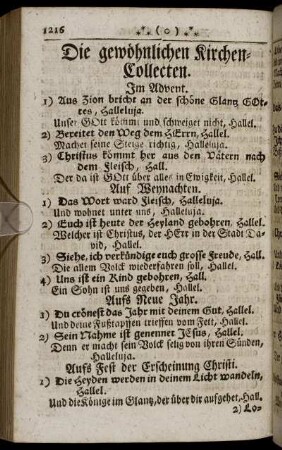 1216 (o)
Die gewöhnlichen Kirchen-
Collecten.
Im Advent.
1) Aus Zion bricht an der schöne Glantz GOt-
tes, Halleluja.
Unser GOtt kömmt und schweiget nicht, Hallel.
2) Bereitet den Weg dem HErrn, Hallel.
Machet seine Steige richtig, Halleluja.
3) Christus kömmt her aus den Vätern nach
dem Fleisch, Hall.
Der da ist GOtt über alles in Ewigkeit, Hallel.
Auf Weynachten.
1) Das Wort ward Fleisch, Halleluja.
Und wohnet unter uns, Halleluja.
2) Euch ist heute der Heyland gebohren, Hallel.
Welcher ist Christus, der HErr in der Stadt Da-
vid, Hallel.
3) Siehe, ich verkündige euch grosse Freude, Hall.
Die allem Volck wiederfahren soll, Hallel.
4) Uns ist ein Kind gebohren, Hall.
Ein Sohn ist uns gegeben, Hallel.
Aufs Neue Jahr.
1) Du crönest das Jahr mit deinem Gut, Hallel.
Und deine Fußtapfen trieffen vom Fett, Hallel.
2) Sein Nahme ist genennet JEsus, Hallel.
Denn er macht sein Volck selig von ihren Sünden,
Halleluja.
Aufs Fest der Erscheinung Christi.
1) Die Heyden werden in deinem Licht wandeln,
Hallel.
Und die Könige im Glantz, der über dir aufgehet, Hall.
2) Lo-